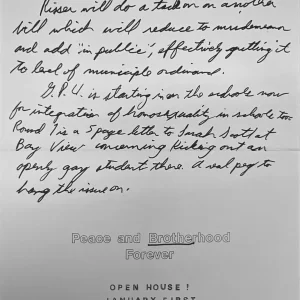 Risser will do a tack on on another
bill which will reduce to misdemeanor
and add "in public", effectively putting it
to level of municiple ordinance.
G.P.U. is starting in on the schools now
for integration of homosexuality in schools too.
Round 1 is a 5 page letter to Sarah Scott, at
Bay View concerning kicking out an
openly gay student there. A real peg to
hang the issue on.
Peace and Brotherhood
Forever
OPEN HOUSE!
JANUARY FIRST